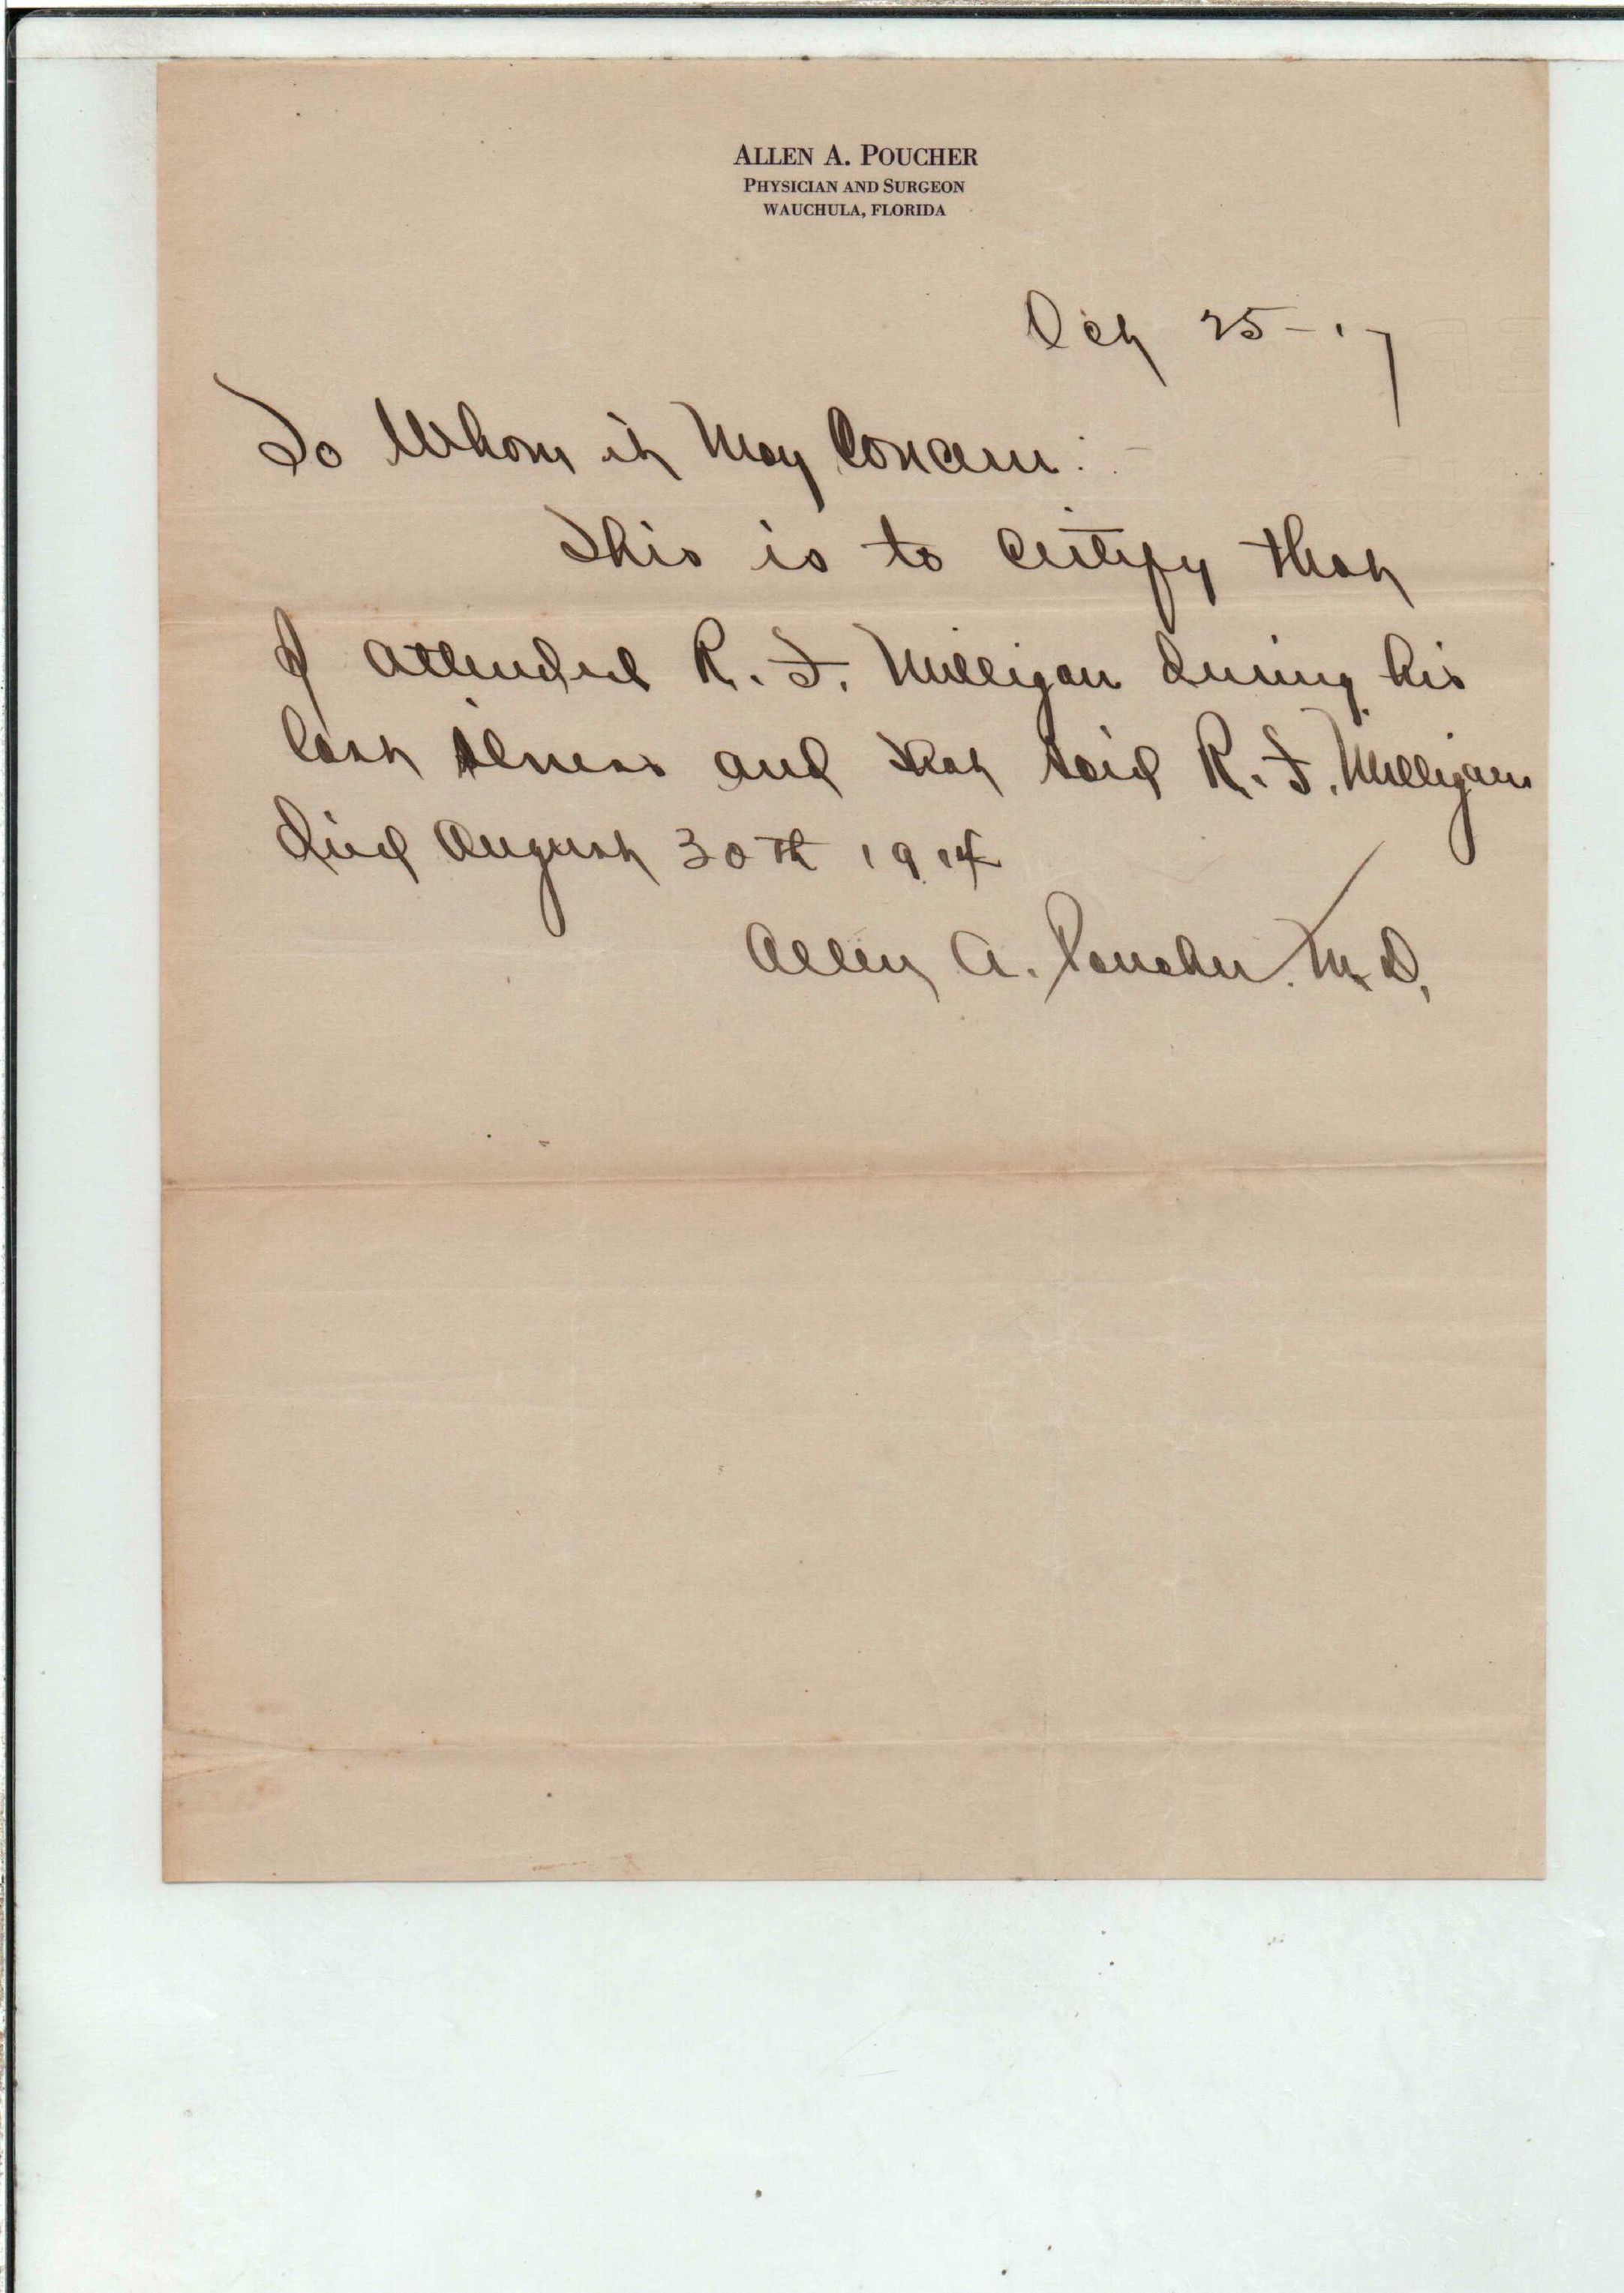 ALLEN A. POUCHER
PHYSICIAN AND SURGEON
WAUCHULA, FLORIDA
Oct 25-17
To Whom it May Concern:-
This is to certify that
I attended R. F. Milligan during his
last ilness and that said R. F. Milligan
died August 30th 1914
Allen A. Poucher. M.D.